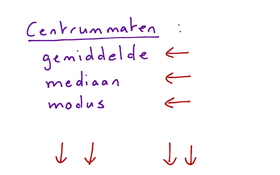 Centrummaten :
gemiddelde
mediaan
modus